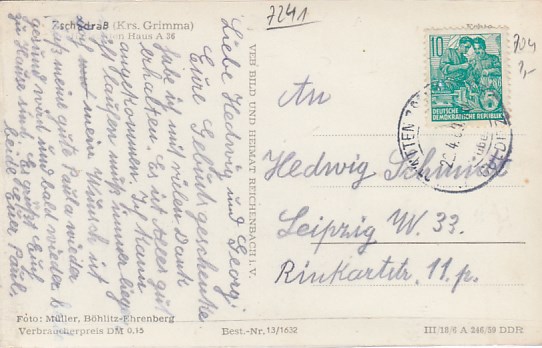 7241
Zschadraß (Krs. Grimma)
Haus A 36
Liebe Hedwig und Georg!
Eure Geburtsgeschenke
habe ich mit vielen Dank
erhalten. Es ist Alles gut
angekommen. Ich kann
laufen muß immer liegen
mein Wunsch ist
meine gute Paula wieder
gesund wird und bald wieder
zu Hause sind. Es grüßt Euch
beide Euer Paul.
VEB BILD UND HEIMAT REICHENBACH I. V.
10
DEUTSCHE
DEMOKRATISCHE REPUBLIK
704
An
Hedwig
Leipzig W. 33.
Rinkartstr. 11. p.
Foto: Müller, Böhlitz-Ehrenberg
Verbraucherpreis DM 0.15
Best.-Nr. 13/1632
III/18/6 A 246/59 DDR